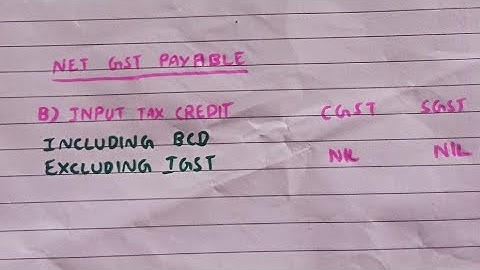 NET GST PAYABLE
B) INPUT TAX CREDIT CGST SGST
INCLUDING BCD
EXCLUDING IGST NIL NIL